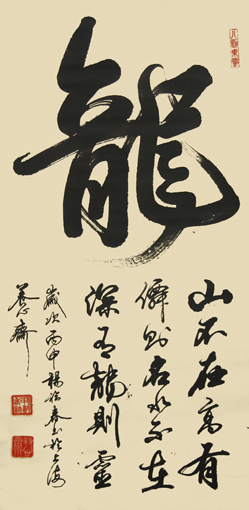 龍
山不在高有
僊則名水不在
深有龍則靈
歲次丙申楊春書於上海
養心齋